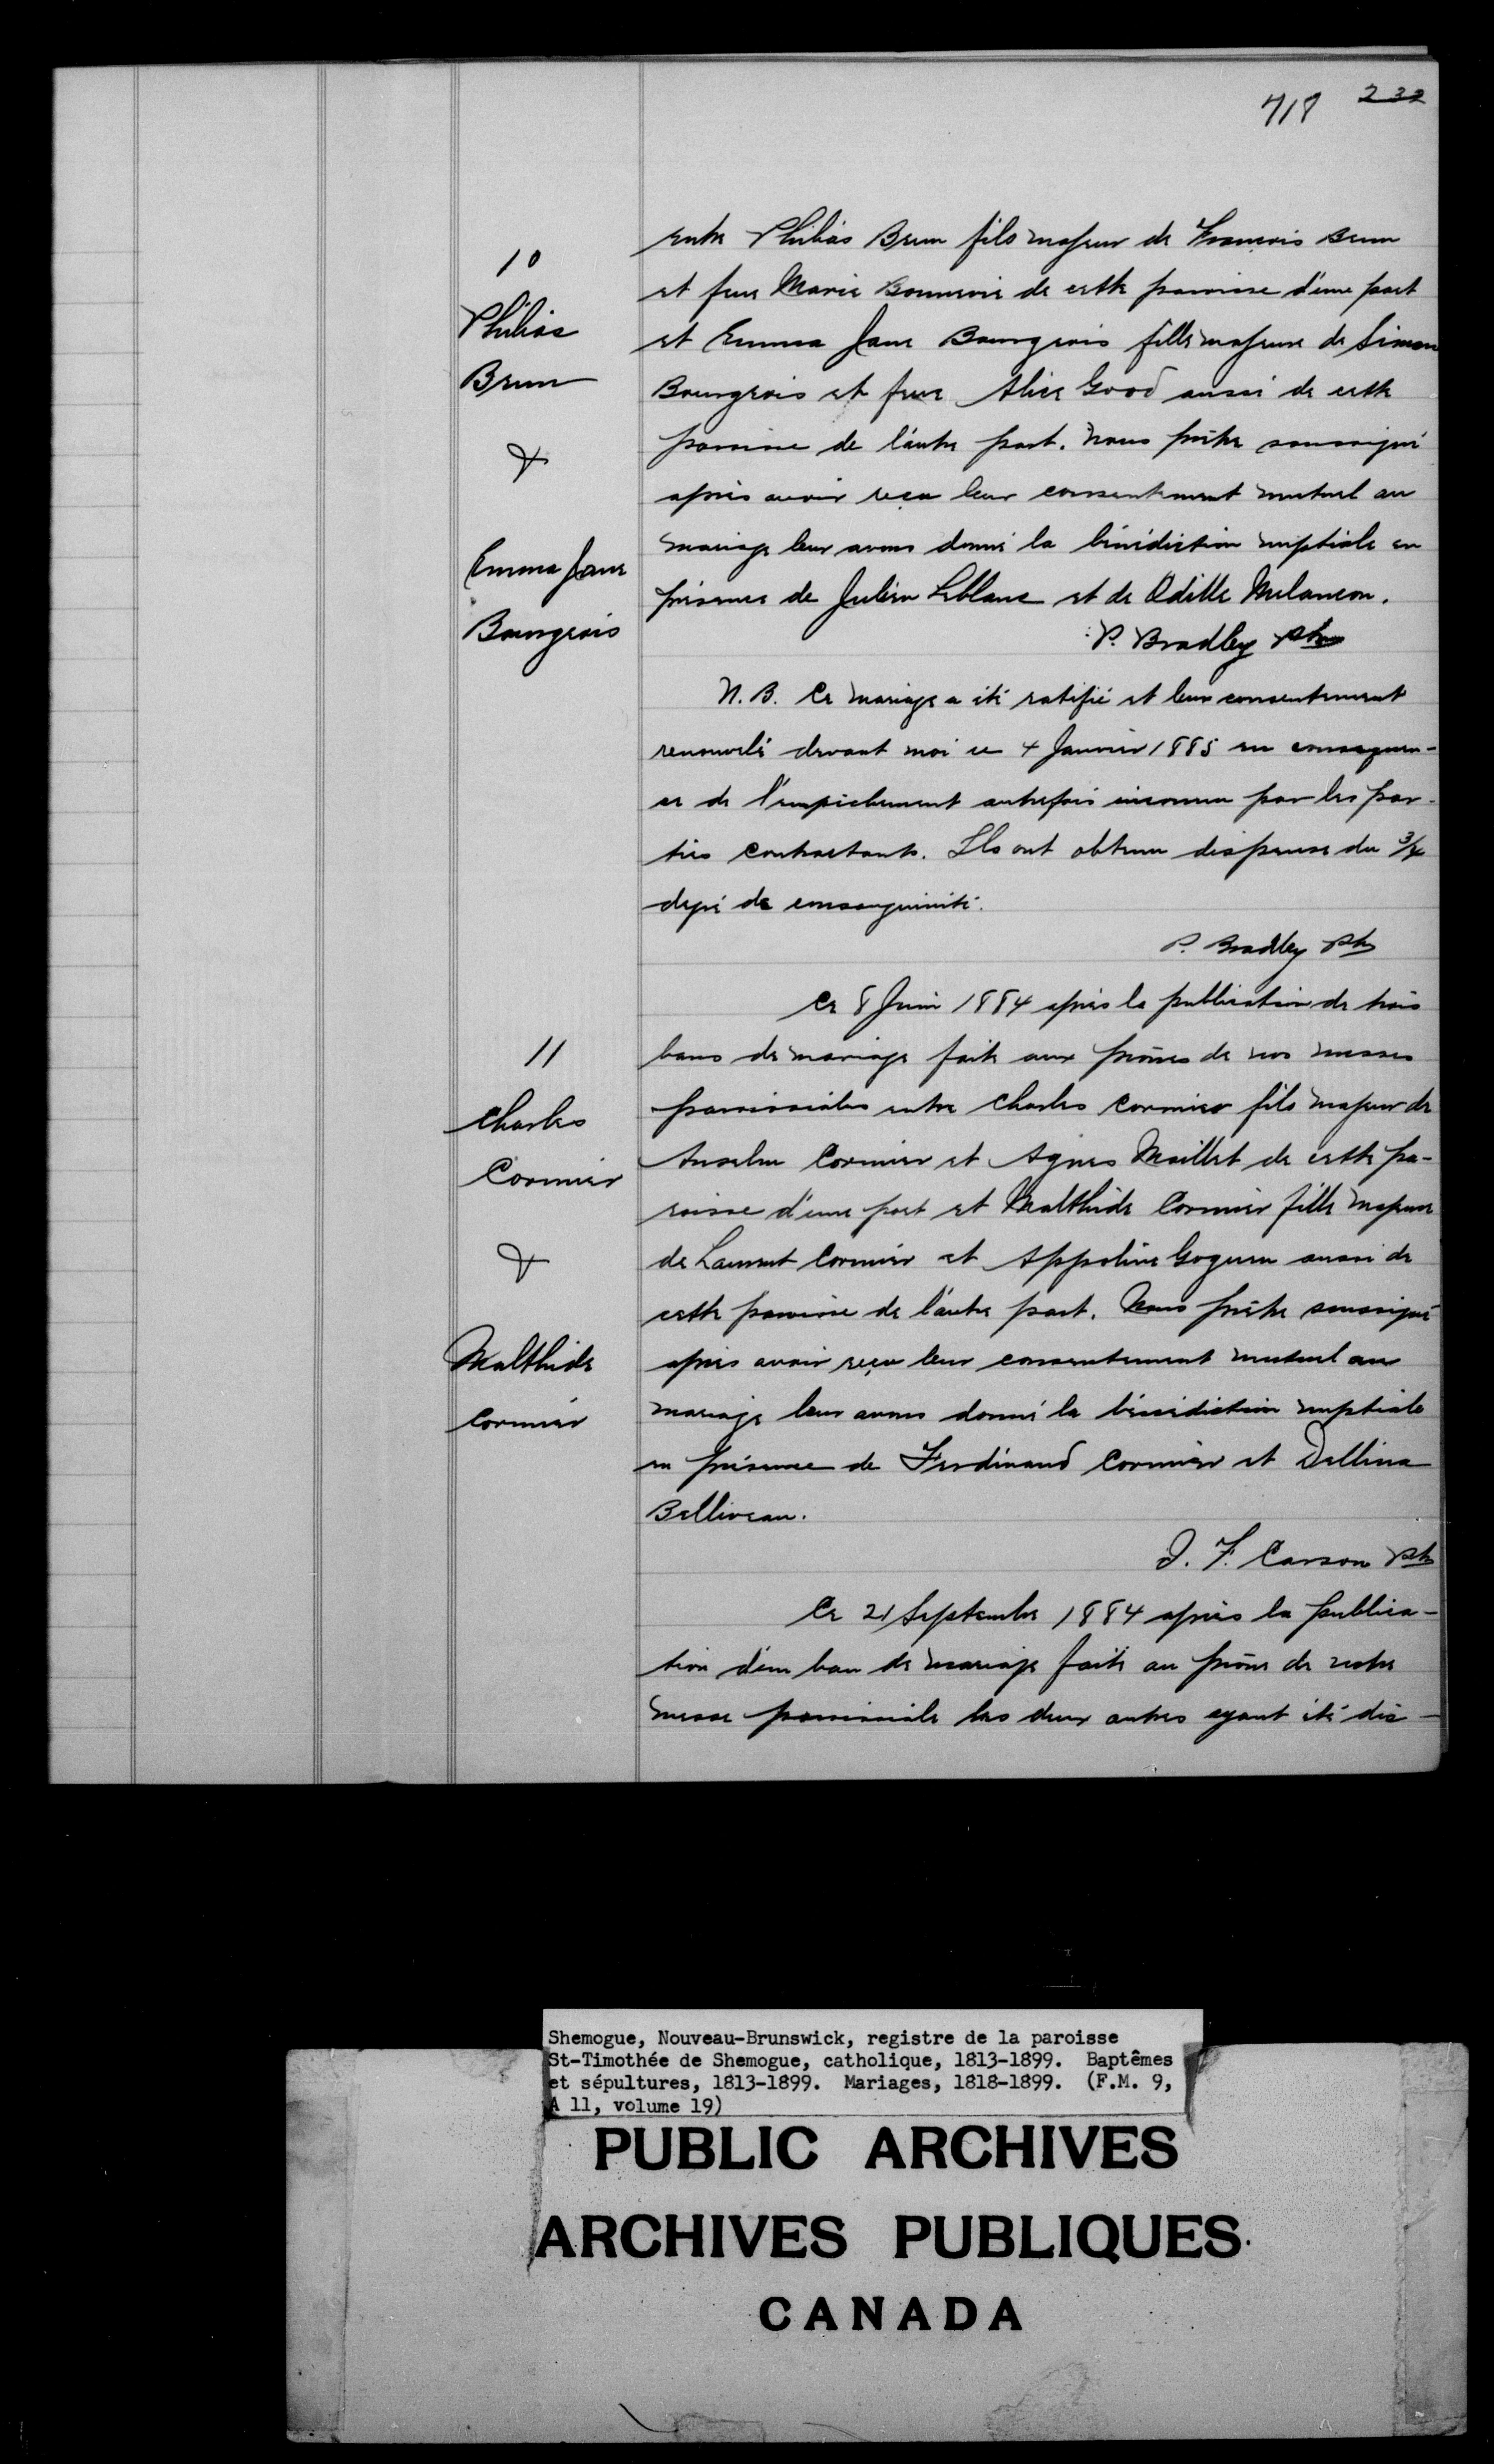 718 232
10
Philias
Brun
&
Emma Jane
Bourgeois
entre Philias Brun fils majeur de Francois Brun
et feue Marie Bonnevie de cette paroisse d'une part
et Emma Jane Bourgeois fille majeure de Simon
Bourgeois et feue Alice Good aussi de cette
paroisse de l'autre part. Nous prêtre soussigné
après avoir reçu leur consentement mutuel au
mariage leur avons donné la bénédiction nuptiale en
présence de Julien Leblanc et de Odille Melancon.
P. Bradley Ptre
N.B. Ce mariage a été ratifié et leur consentement
renouvelé devant moi ce 4 Janvier 1885 en consequen-
ce de l'empêchement autrefois inconnu par les par-
ties contractants. Ils ont obtenu dispense du 3/4
degré de consanguinité.
P. Bradley Ptre
11
Charles
Cormier
&
Malthide
Cormier
Ce 8 Juin 1884 après la publication de trois
bans de mariage faite aux prônes de nos messes
paroissiales entre Charles Cormier fils majeur de
Anselme Cormier et Agnes Maillet de cette pa-
roisse d'une part et Malthide Cormier fille majeure
de Laurent Cormier et Appoline Goguen aussi de
cette paroisse de l'autre part. Nous prêtre soussigné
après avoir reçu leur consentement mutuel au
mariage leur avons donné la bénédiction nuptiale
en présence de Ferdinand Cormier et Dellina
Belliveau.
J. F. Carson Ptre
Ce 21 Septembre 1884 après la publica-
tion d'un ban de mariage faite au prône de notre
messe paroissiale les deux autres ayant été dis-
Shemogue, Nouveau-Brunswick, registre de la paroisse
St-Timothée de Shemogue, catholique, 1813-1899. Baptêmes
et sépultures, 1813-1899. Mariages, 1818-1899. (F.M. 9,
A 11, volume 19)
PUBLIC ARCHIVES
ARCHIVES PUBLIQUES
CANADA